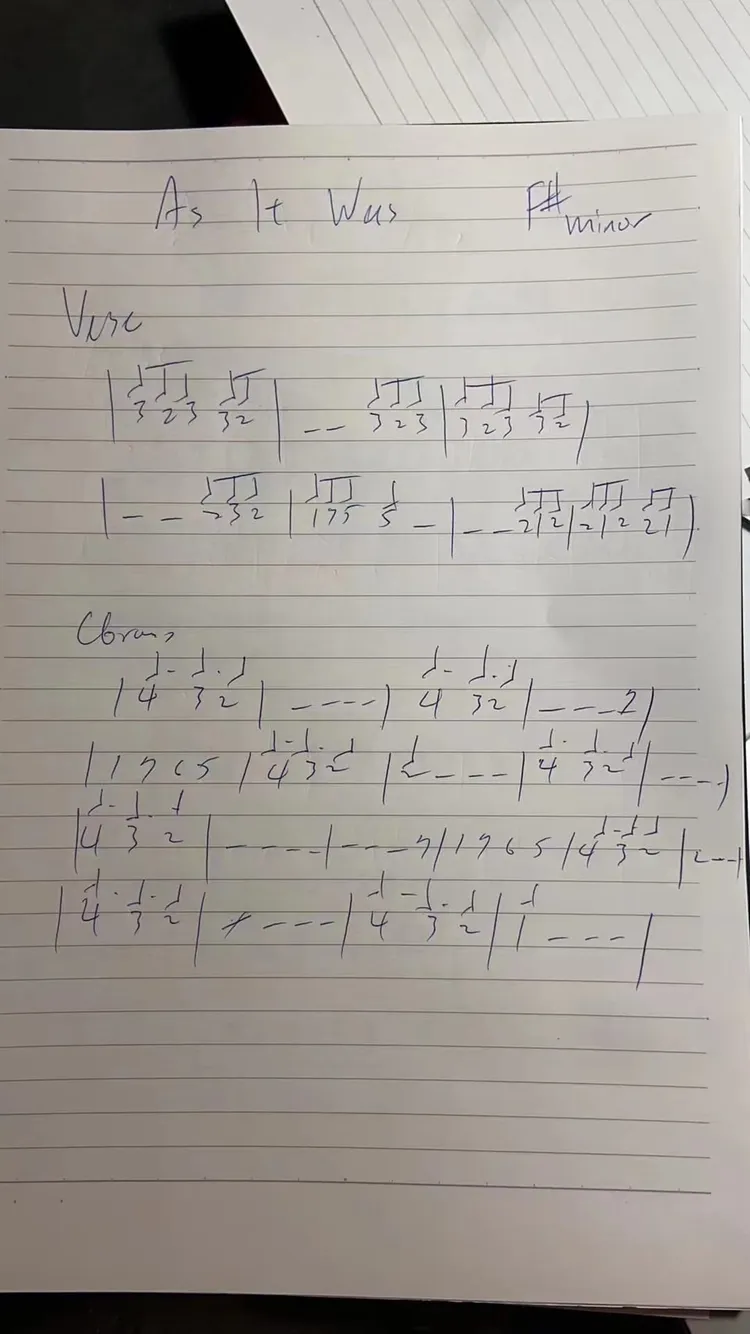 As It Was F# minor
Verse
| 3 2 3 3 2 | – – 3 2 3 | 3 2 3 3 2 |
| – – 2 3 2 | 1 7 5 5 – | – – 2 1 2 | 2 1 2 2 1 |
Chorus
| 4 - 3 . 2 | – – – – | 4 - 3 . 2 | – – – 2 |
| 1 7 6 5 | 4 - 3 . 2 | 2 – – – | 4 . 3 . 2 | – – – – |
| 4 - 3 . 2 | – – – – | – – – 7 | 1 7 6 5 | 4 - 3 - 2 | 2 – – – |
| 4 . 3 . 2 | – – – | 4 – 3 . 2 | 1 – – – |